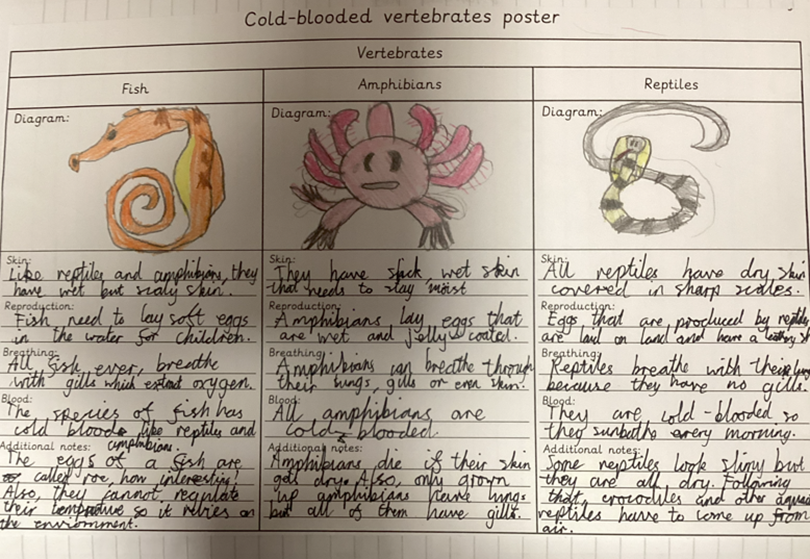 Cold-blooded vertebrates poster
Vertebrates
Fish
Amphibians
Reptiles
Diagram:
Diagram:
Diagram:
Skin:
Like reptiles and amphibians, they
have wet but scaly skin.
Reproduction:
Fish need to lay soft eggs
in the water for children.
Breathing:
All fish, ever, breathe
with gills which extract oxygen.
Blood:
The species of fish has
cold blood like reptiles and
amphibians.
Additional notes:
The eggs of a fish are
called roe, how interesting!
Also, they cannot regulate
their so it relies on
the enviornment.
Skin:
They have slick, wet skin
that needs to stay moist
Reproduction:
Amphibians lay eggs that
are wet and jelly coated.
Breathing:
Amphibians can breathe through
their lungs, gills or even skin.
Blood:
All amphibians are
cold-blooded.
Additional notes:
Amphibians die if their skin
get dry. Also, only grown
up amphibians have lungs
but all of them have gills.
Skin:
All reptiles have dry skin
covered in sharp scales.
Reproduction:
Eggs that are produced by
are laid on land and have a
Breathing:
Reptiles breathe with their
because they have no gills.
Blood:
They are cold-blooded so
they sunbathe every morning.
Additional notes:
Some reptiles look slimy but
they are all dry. Following
that, crocodiles and other
reptiles have to come up from
air.